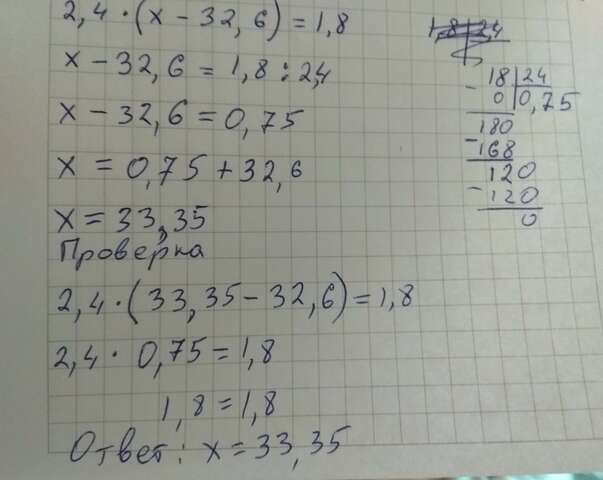 2,4·(x-32,6)=1,8
x-32,6=1,8:2,4
x-32,6=0,75
x=0,75+32,6
x=33,35
Проверка
2,4·(33,35-32,6)=1,8
2,4·0,75=1,8
1,8=1,8
Ответ: x=33,35
- 18|24
0|0,75
180
-168
120
-120
0